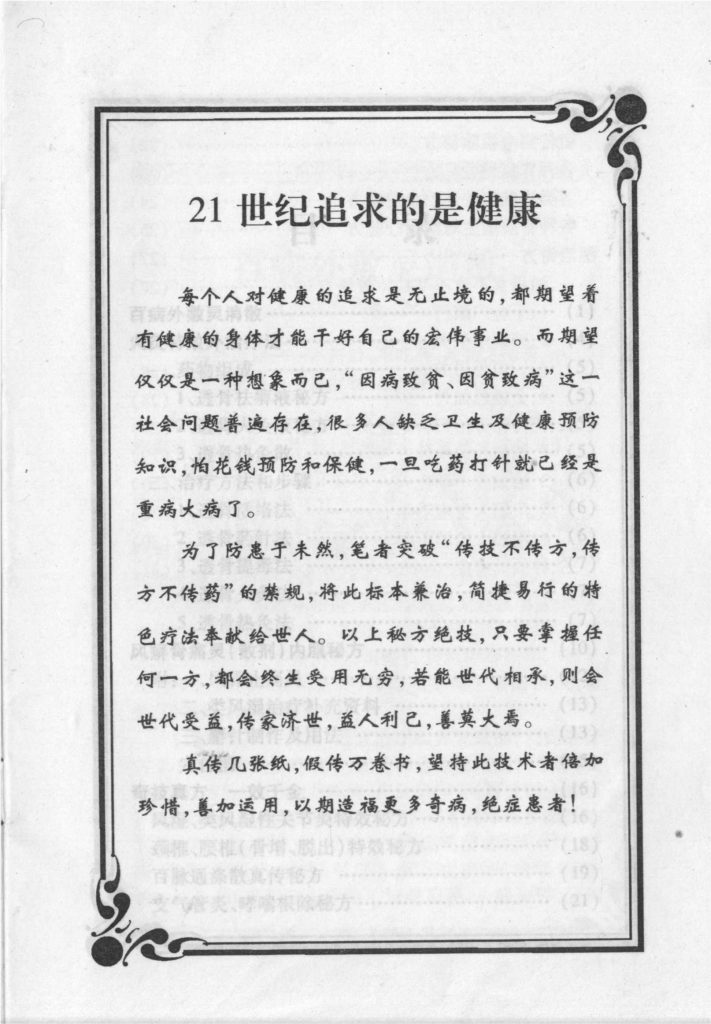 21 世纪追求的是健康
每个人对健康的追求是无止境的，都期望着
有健康的身体才能干好自己的宏伟事业。而期望
仅仅是一种想象而已，“因病致贫、因贫致病”这一
社会问题普遍存在，很多人缺乏卫生及健康预防
知识，怕花钱预防和保健，一旦吃药打针就已经是
重病大病了。
为了防患于未然，笔者突破“传技不传方，传
方不传药”的禁规，将此标本兼治，简捷易行的特
色疗法奉献给世人。以上秘方绝技，只要掌握任
何一方，都会终生受用无穷，若能世代相承，则会
世代受益，传家济世，益人利己，善莫大焉。
真传几张纸，假传万卷书，望持此技术者倍加
珍惜，善加运用，以期造福更多奇病，绝症患者！